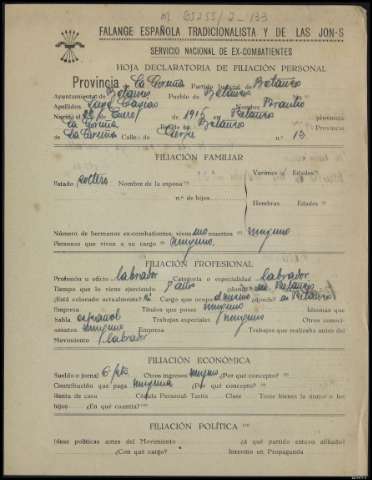 FALANGE ESPAÑOLA TRADICIONALISTA Y DE LAS JON-S
SERVICIO NACIONAL DE EX-COMBATIENTES
HOJA DECLARATORIA DE FILIACIÓN PERSONAL
Provincia de La Coruña Partido Judicial de Betanzos
Ayuntamiento de Betanzos Pueblo de Betanzos
Apellidos Nombre Braulio
Nació el de 1915 en Betanzos Provincia
La Coruña Reside en Betanzos Provincia
La Coruña Calle: de n.º 13
FILIACIÓN FAMILIAR
Varones Edades
Estado soltero Nombre de la esposa
n.º de hijos
Hembras Edades
Número de hermanos ex-combatientes, vivos uno muertos ninguno
Personas que viven a su cargo ninguno.
FILIACIÓN PROFESIONAL
Profesión u oficio labrador Categoría o especialidad labrador
Tiempo que lo viene ejerciendo 7 años ¿dónde? en Betanzos
¿Está colocado actualmente? No Cargo que ocupa el mismo ¿dónde? en Betanzos
Empresa Títulos que posee ninguno Idiomas que
habla español Trabajos especiales ninguno Otros conoci-
mientos ninguno Empresa Trabajos que realizaba antes del
Movimiento labrador
FILIACIÓN ECONÓMICA
Sueldo o jornal 6 pts Otros ingresos ninguno ¿Por qué concepto?
Contribución que paga ninguna ¿Por qué concepto?
Renta de casa Cédula Personal: Tarifa Clase Tiene bienes la mujer o los
hijos ¿En qué cuantía?
FILIACIÓN POLÍTICA
Ideas políticas antes del Movimiento ¿A qué partido estuvo afiliado?
¿Con qué cargo? Intervino en Propaganda